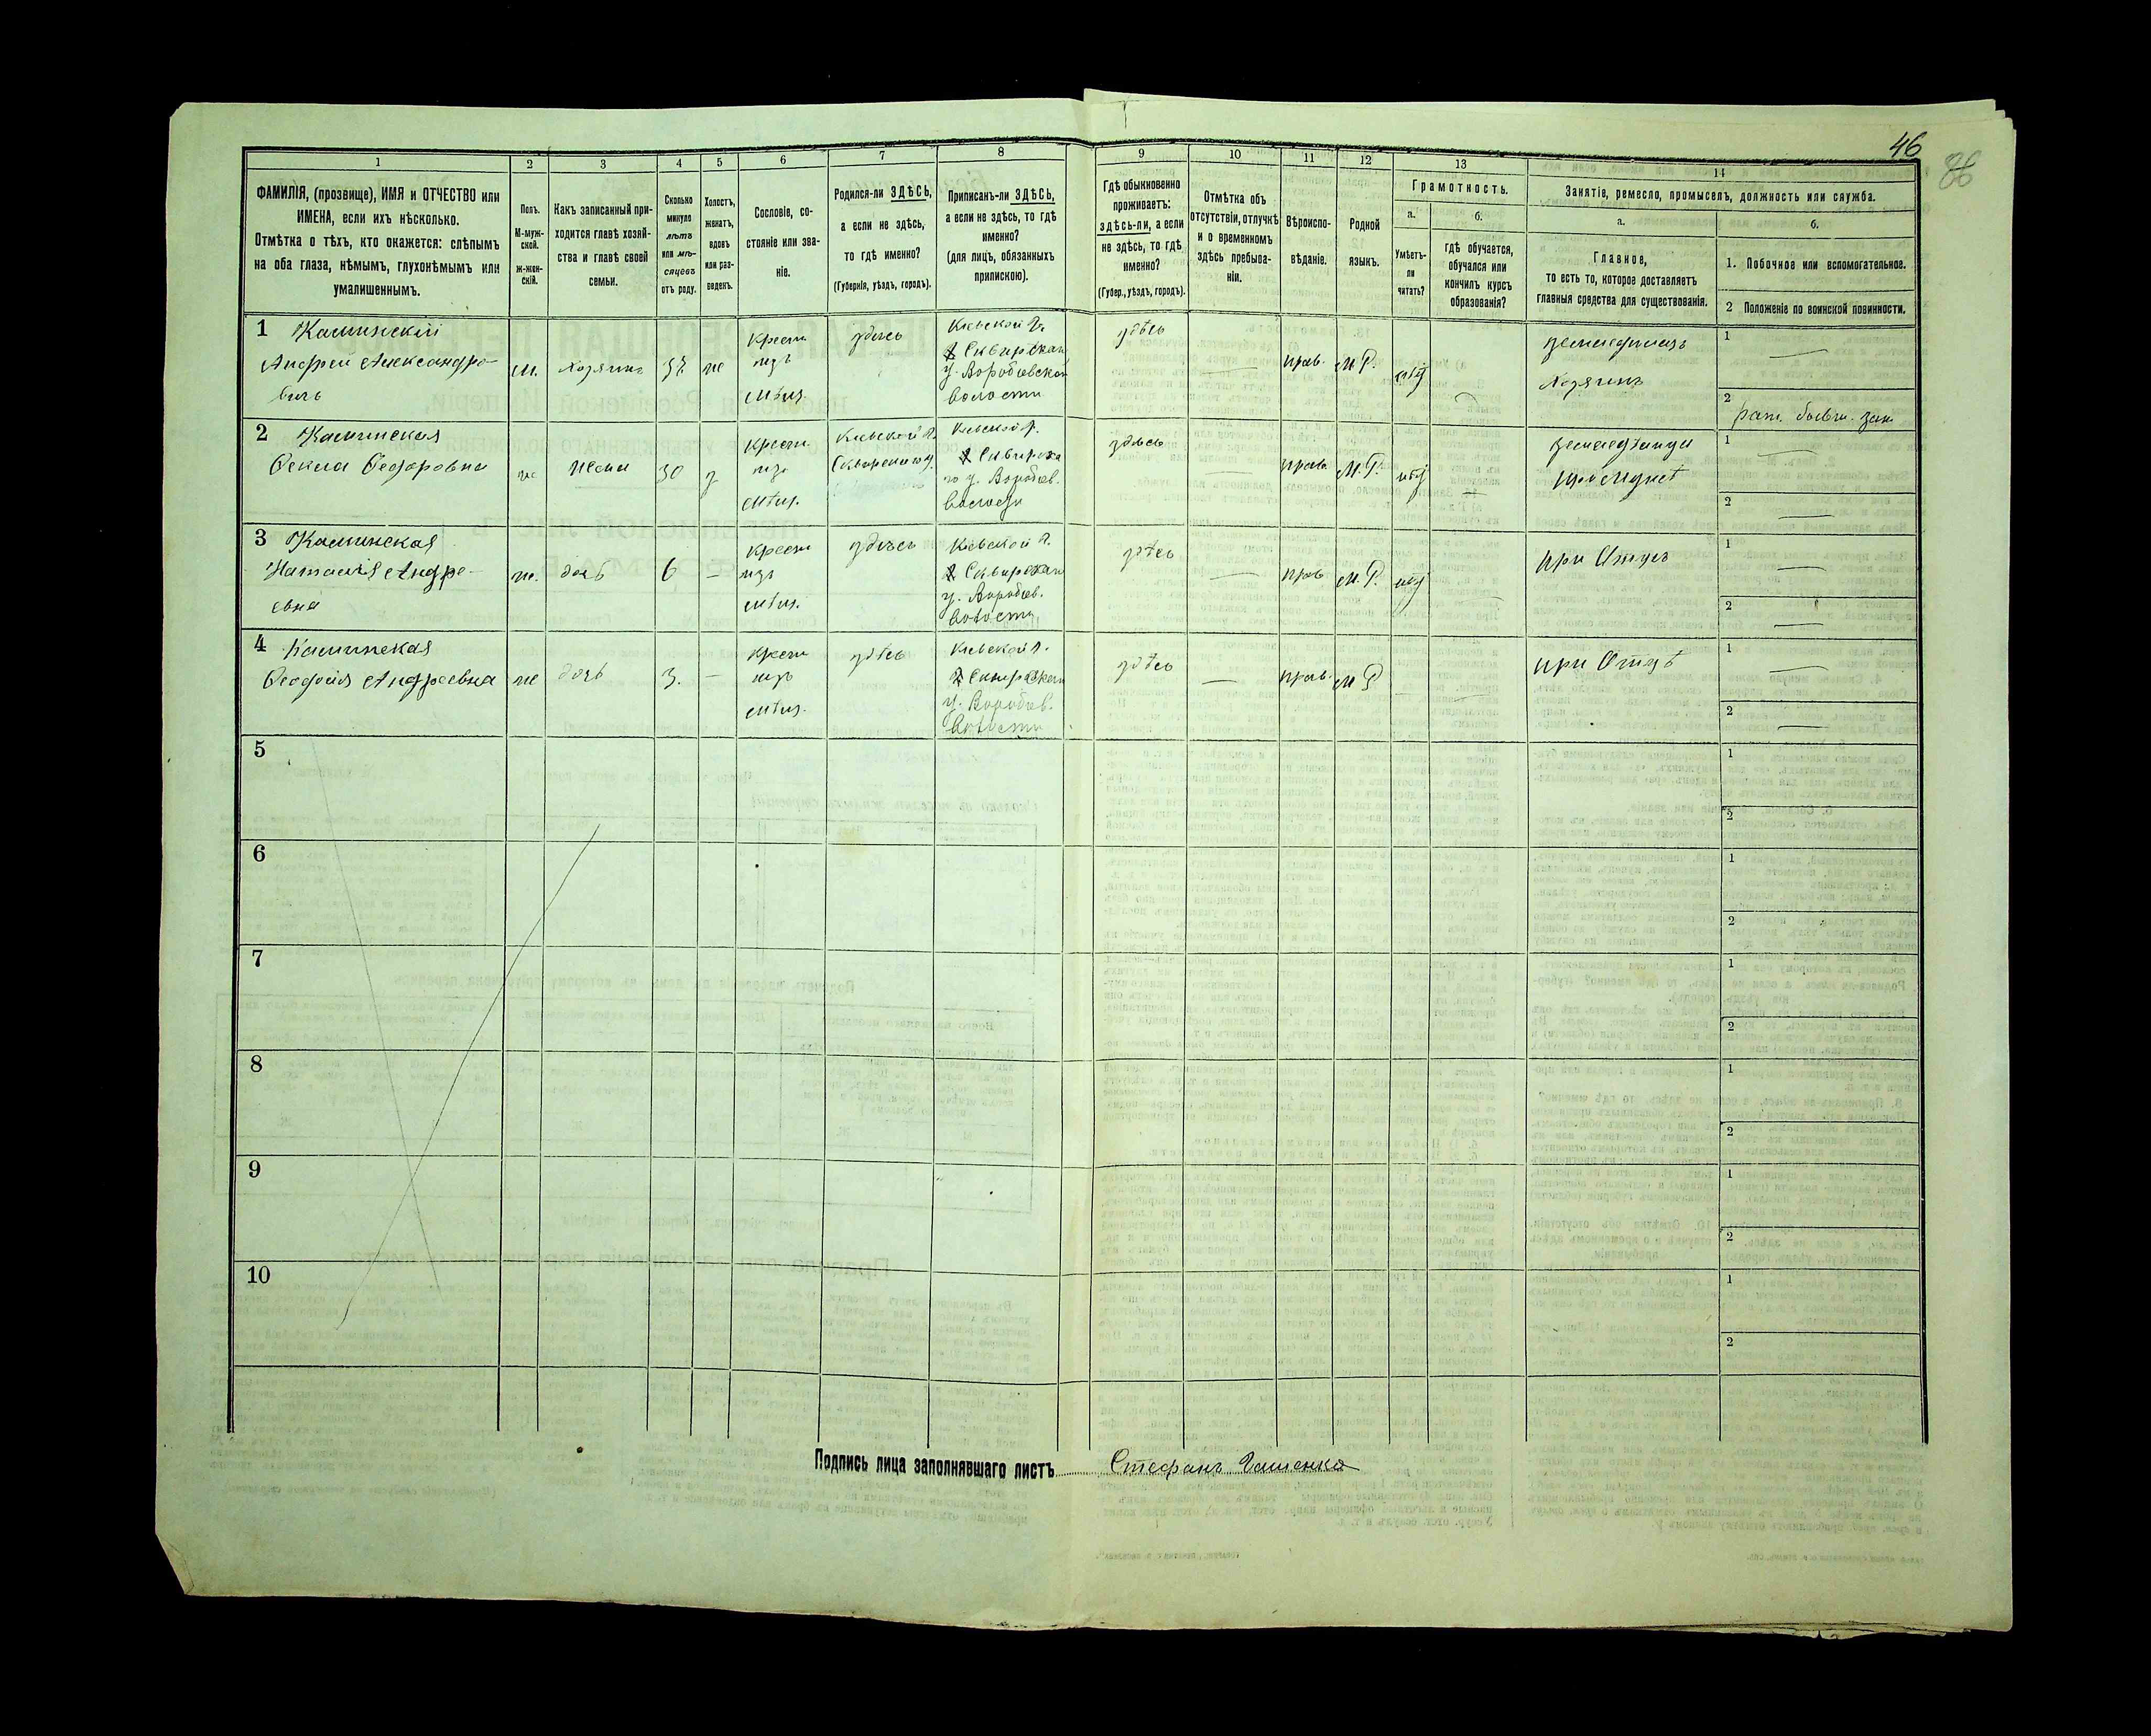 46
86
1
2
3
4
5
6
7
8
9
10
11
12
13
14
ФАМИЛІЯ, (прозвище), ИМЯ и ОТЧЕСТВО или
ИМЕНА, если ихъ нѣсколько.
Отмѣтка о тѣхъ, кто окажется: слѣпымъ
на оба глаза, нѣмымъ, глухонѣмымъ или
умалишеннымъ.
Полъ.
М-муж-
ской.
ж-жен-
скій.
Какъ записанный при-
ходится главѣ хозяй-
ства и главѣ своей
семьи.
Сколько
минуло
лѣтъ
или мѣ-
сяцевъ
отъ роду.
Холостъ,
женатъ,
вдовъ
или раз-
веденъ.
Сословіе, со-
стояніе или зва-
ніе.
Родился-ли ЗДѢСЬ,
а если не здѣсь,
то гдѣ именно?
(Губернія, уѣздъ, городъ).
Приписанъ-ли ЗДѢСЬ,
а если не здѣсь, то гдѣ
именно?
(для лицъ, обязанныхъ
припискою).
Гдѣ обыкновенно
проживаетъ:
здѣсь-ли, а если
не здѣсь, то гдѣ
именно?
(Губер., уѣздъ, городъ).
Отмѣтка объ
отсутствіи, отлучкѣ
и о временномъ
здѣсь пребыва-
ніи.
Вѣроиспо-
вѣданіе.
Родной
языкъ.
Грамотность.
а.
б.
Умѣетъ-
ли
читать?
гдѣ обучается,
обучался или
кончилъ курсъ
образованія?
Занятія, ремесло, промыселъ, должность или служба.
а.
б.
Главное,
то есть то, которое доставляетъ
главныя средства для существованія.
1. Побочное или вспомогательное.
2 Положеніе по воинской повинности.
1 Калинскій
Андрей Александро-
вичъ
м.
хозяинъ
37
же
крест.
изъ
мѣщ.
здѣсь
Кіевской г.
Сквирскаго
у. Воробіевской
волости
здѣсь
прав.
М. Р.
хозяинъ
1
2
2 Калинская
Текля Теодоровна
ж.
жена
30
з
крест.
изъ
мѣщ.
Кіевской г.
Сквирскаго у.
Кіевской г.
Сквирска
го у. Воробіев.
волости
здѣсь
прав.
М. Р.
при мужѣ
1
2
3 Калинская
Наталія Андре-
евна
ж.
дочь
6
крест.
изъ
мѣщ.
здѣсь
Кіевской г.
Сквирскаго
у. Воробіев.
волости
здѣсь
прав.
М. Р.
при Отцѣ
1
2
4 Калинская
Теодосія Андреевна
ж
дочь
3.
крест.
изъ
мѣщ.
здѣсь
Кіевской г.
Сквирскаго
у. Воробіев.
волости
здѣсь
прав.
М. Р.
при Отцѣ
1
2
5
1
2
6
1
2
7
1
2
8
1
2
9
1
2
10
1
2
Подпись лица заполнявшаго листъ
Стефанъ